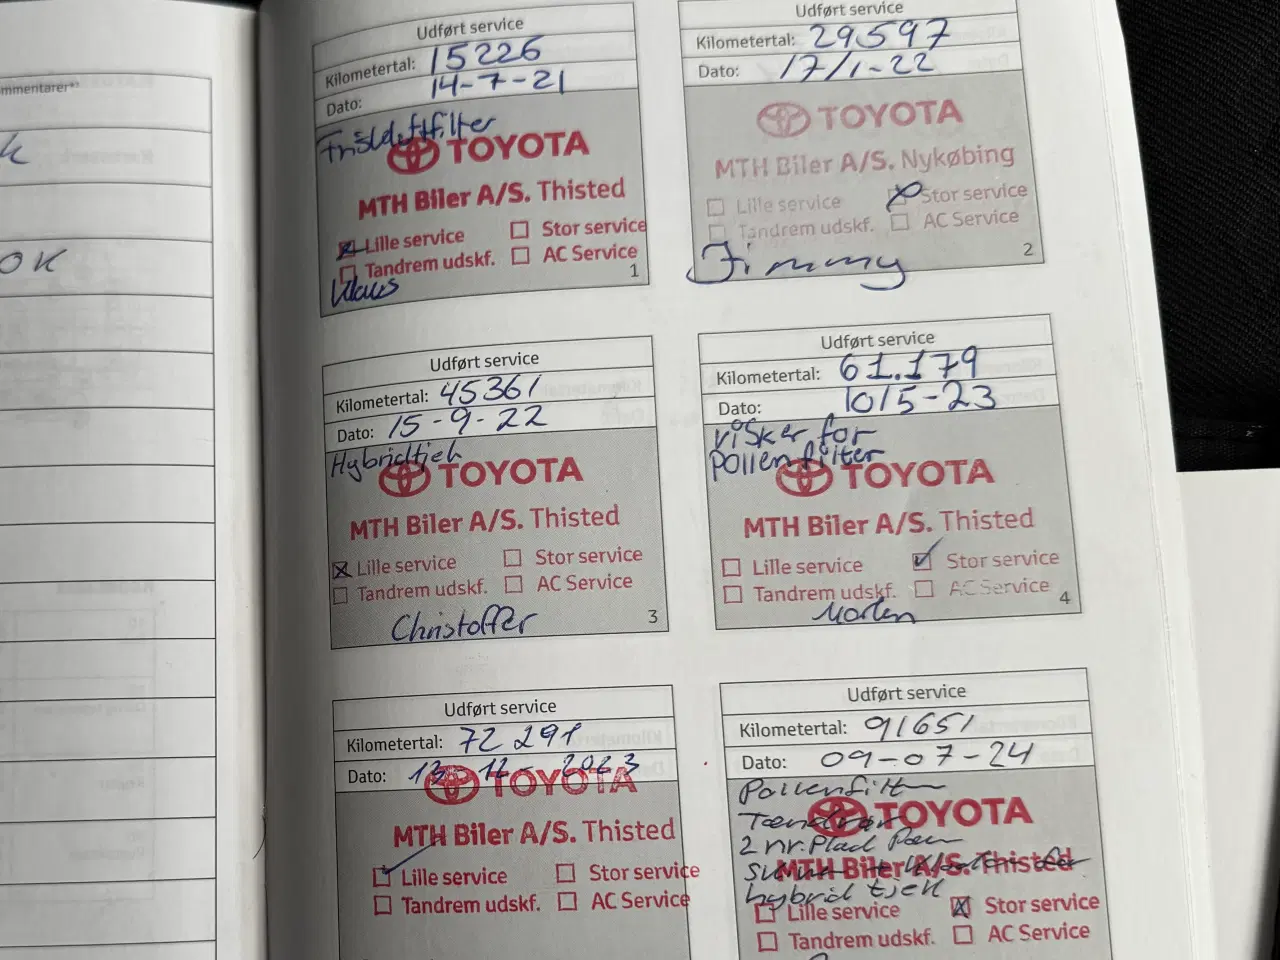 mmentarer*⁾
OK
Udført service
Kilometertal: 15226
Dato: 14-7-21
Friskluftfilter
TOYOTA
MTH Biler A/S. Thisted
Lille service
Stor service
Tandrem udskf.
AC Service
Klaus
1
Udført service
Kilometertal: 29597
Dato: 17/1-22
TOYOTA
MTH Biler A/S. Nykøbing
Lille service
Stor service
Tandrem udskf.
AC Service
Jimmy
2
Udført service
Kilometertal: 45361
Dato: 15-9-22
Hybridtjek
TOYOTA
MTH Biler A/S. Thisted
Lille service
Stor service
Tandrem udskf.
AC Service
Christoffer
3
Udført service
Kilometertal: 61.179
Dato: 10/5-23
visker for
pollenfilter
TOYOTA
MTH Biler A/S. Thisted
Lille service
Stor service
Tandrem udskf.
AC Service
Morten
4
Udført service
Kilometertal: 72291
Dato: 13-12-2023
TOYOTA
MTH Biler A/S. Thisted
Lille service
Stor service
Tandrem udskf.
AC Service
Udført service
Kilometertal: 91651
Dato: 09-07-24
Pollenfilter
TOYOTA
Tændrør
2 nr. Plad
MTH Biler A/S. Thisted
hybrid tjek
Lille service
Stor service
Tandrem udskf.
AC Service